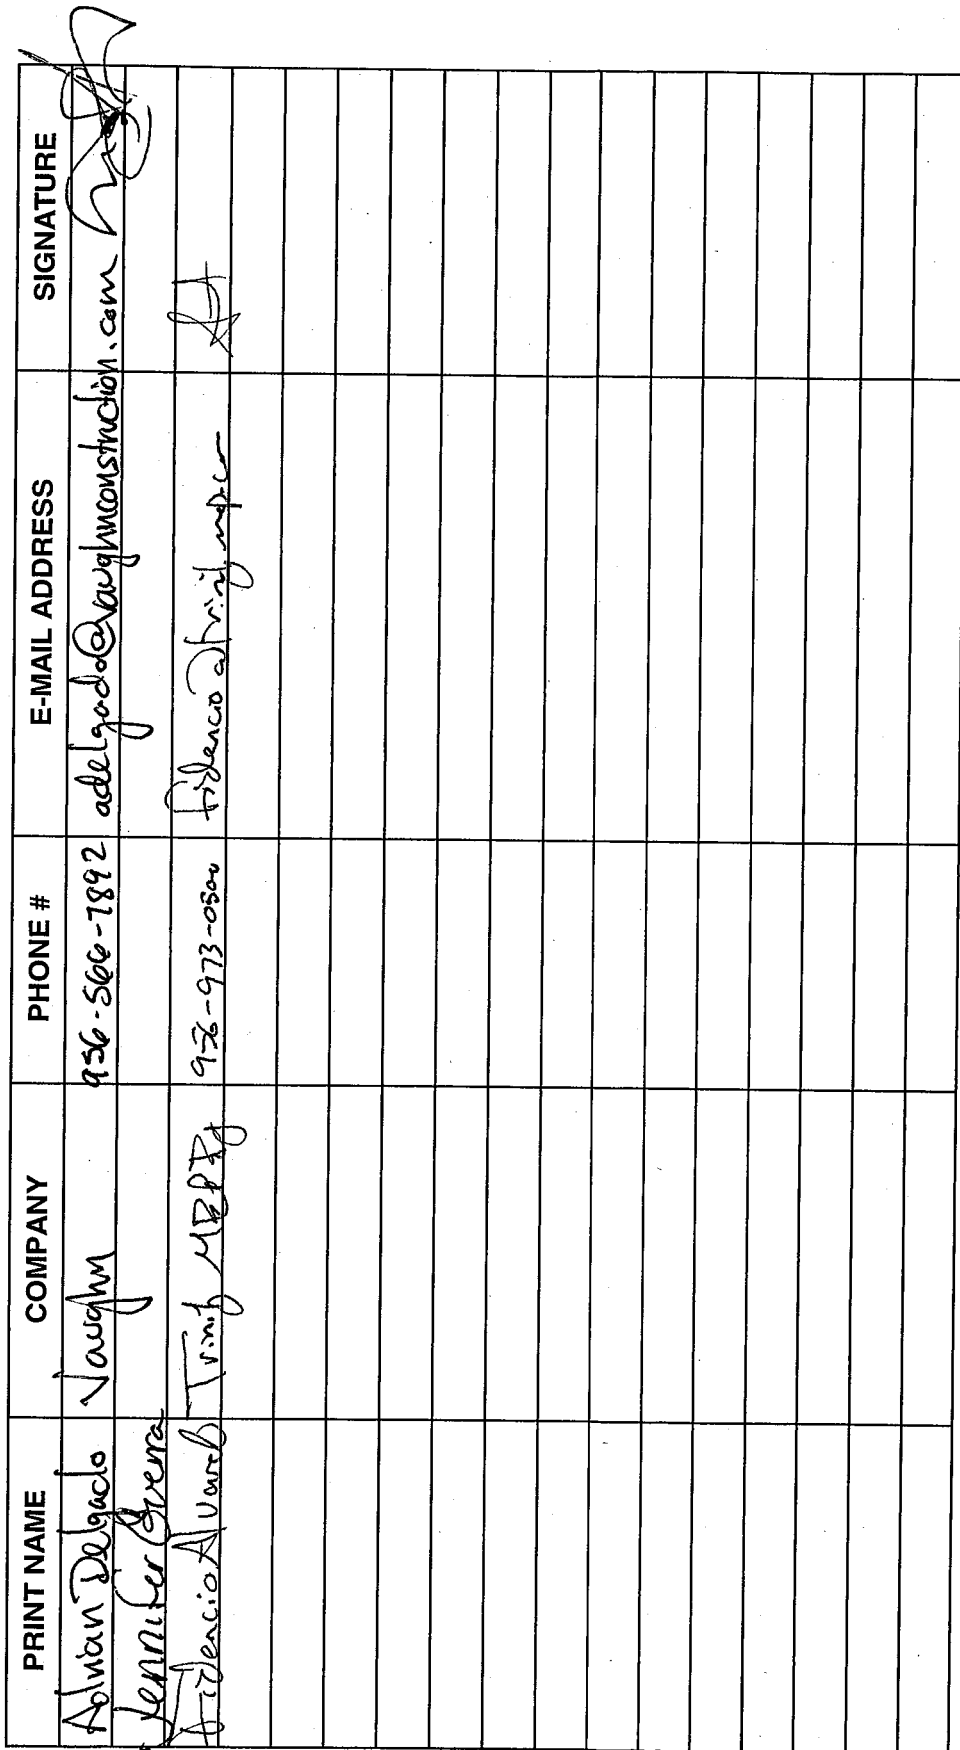 PRINT NAME COMPANY PHONE # E-MAIL ADDRESS SIGNATURE
Adrian Delgado Vaughn 956-566-7892 adelgado@vaughnconstruction.com
Jennifer Guerra
Fidencio Alvarez Trinity 956-973-0500